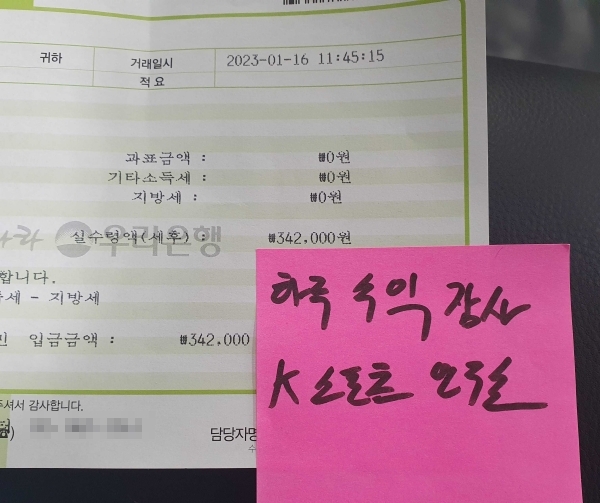 귀하 거래일시 2023-01-16 11:45:15
적요
과표금액 : ₩0원
기타소득세 : ₩0원
지방세 : ₩0원
우리은행
실수령액(세후) : ₩342,000원
합니다.
세 - 지방세
입금금액 : ₩342,000
주셔서 감사합니다.
담당자명
하루 수익 감사
K 스포츠 연구실